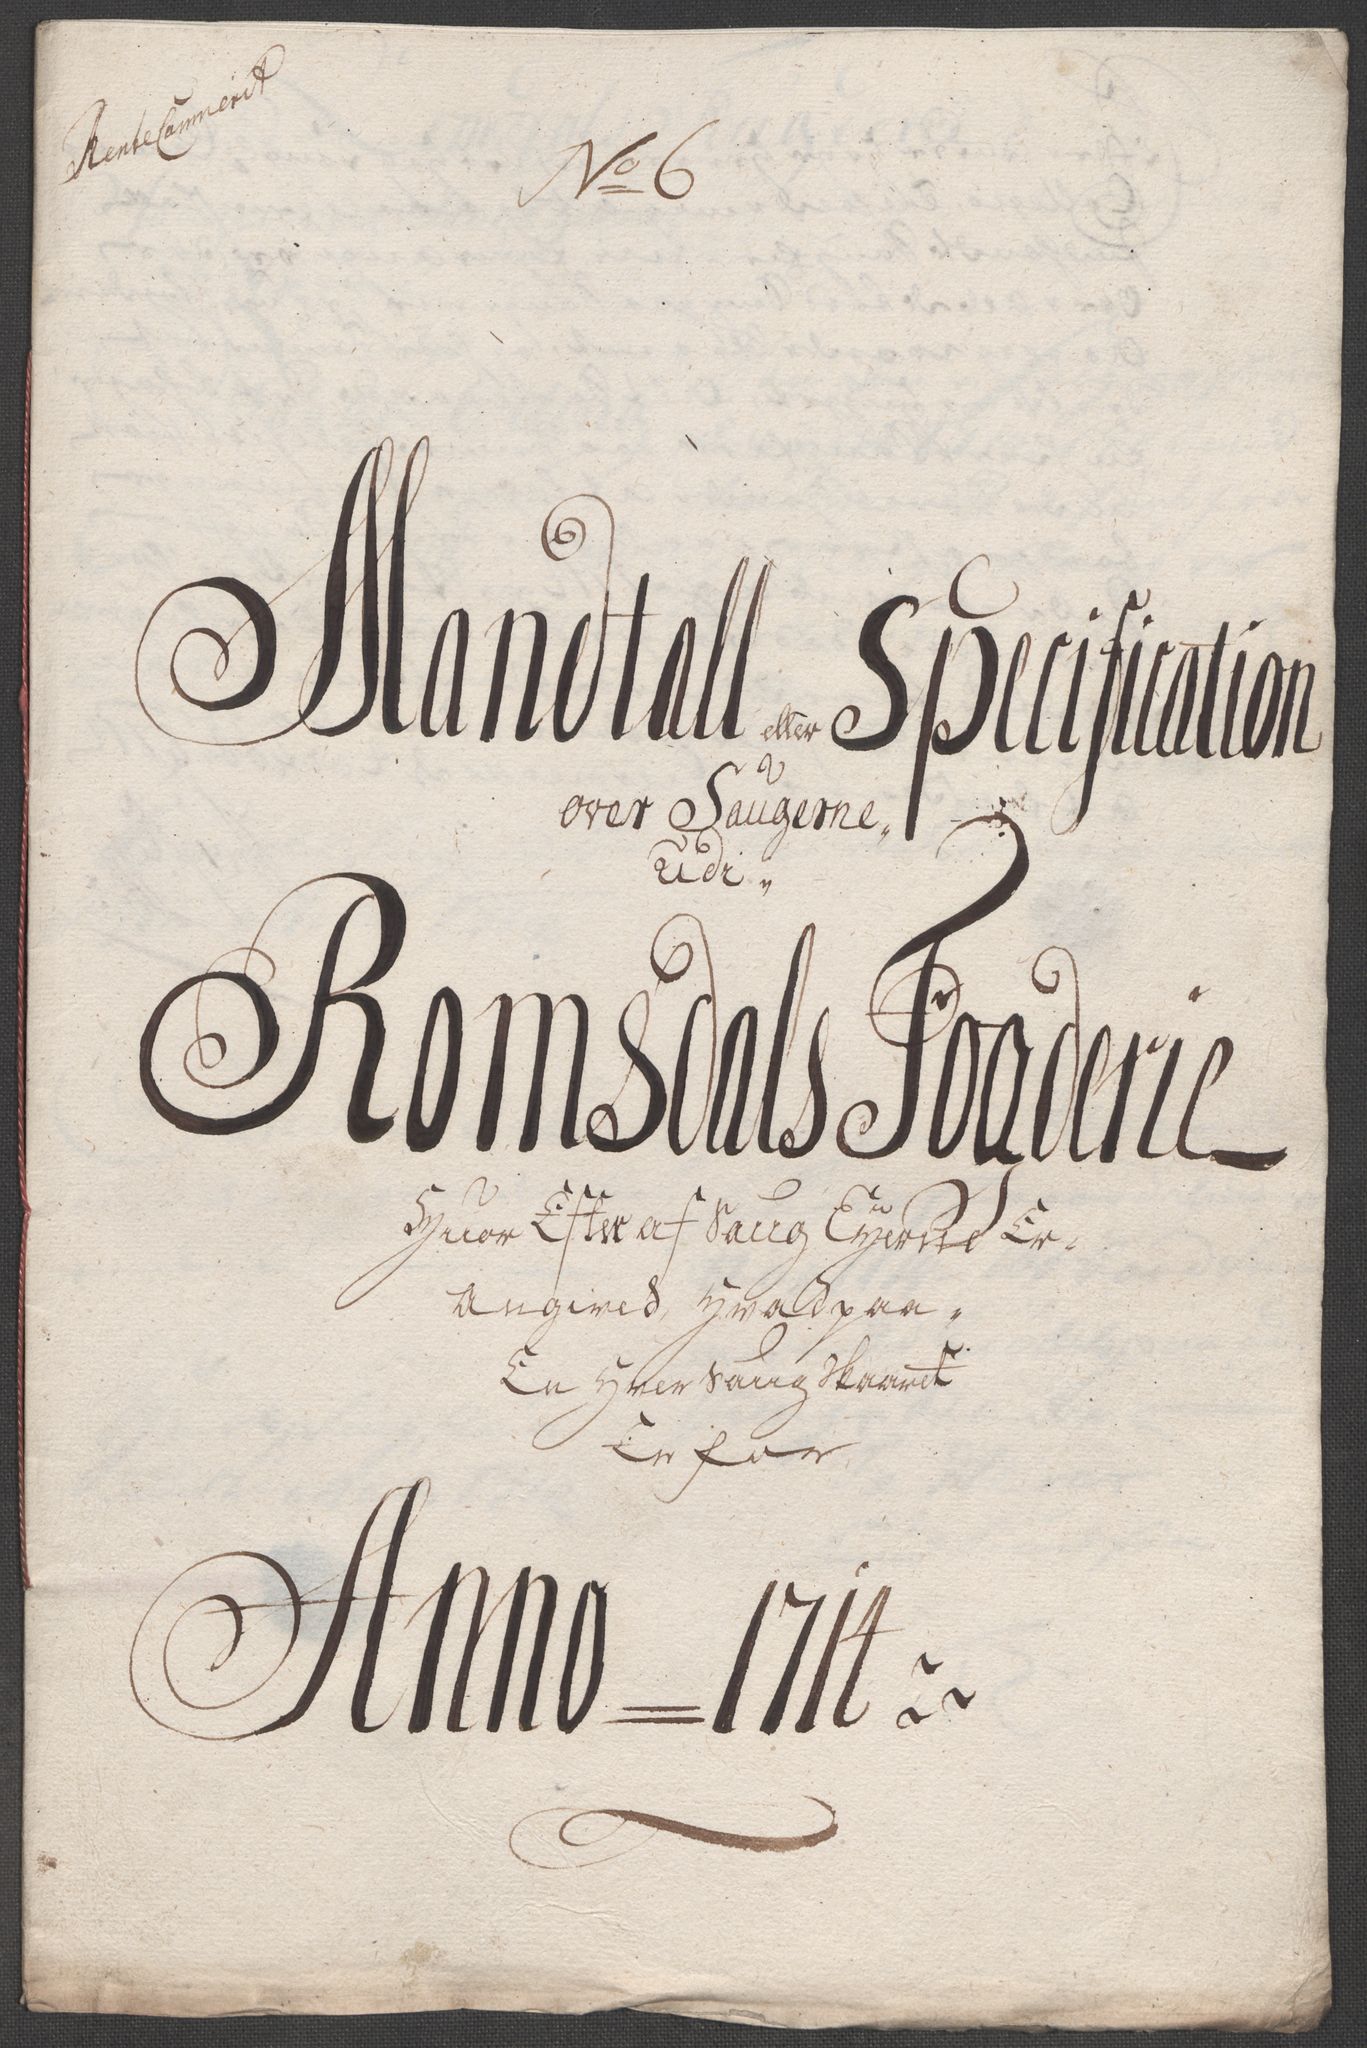 RenteCammerit
No 6
Mandtall eller Specification
over Saugerne„
Udi„
Romsdals Fogderie
Hvor Efter af Saug Eyerne Er
Angived, Hvad paa
En Hver Saug Skaaret
Er for
Anno = 1714